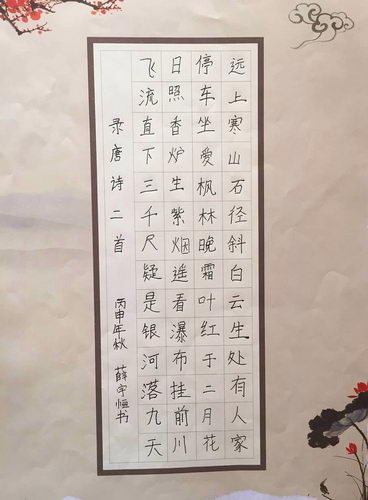 远上寒山石径斜白云生处有人家
停车坐爱枫林晚霜叶红于二月花
日照香炉生紫烟遥看瀑布挂前川
飞流直下三千尺疑是银河落九天
录唐诗二首
丙申年秋 薛宇恒书